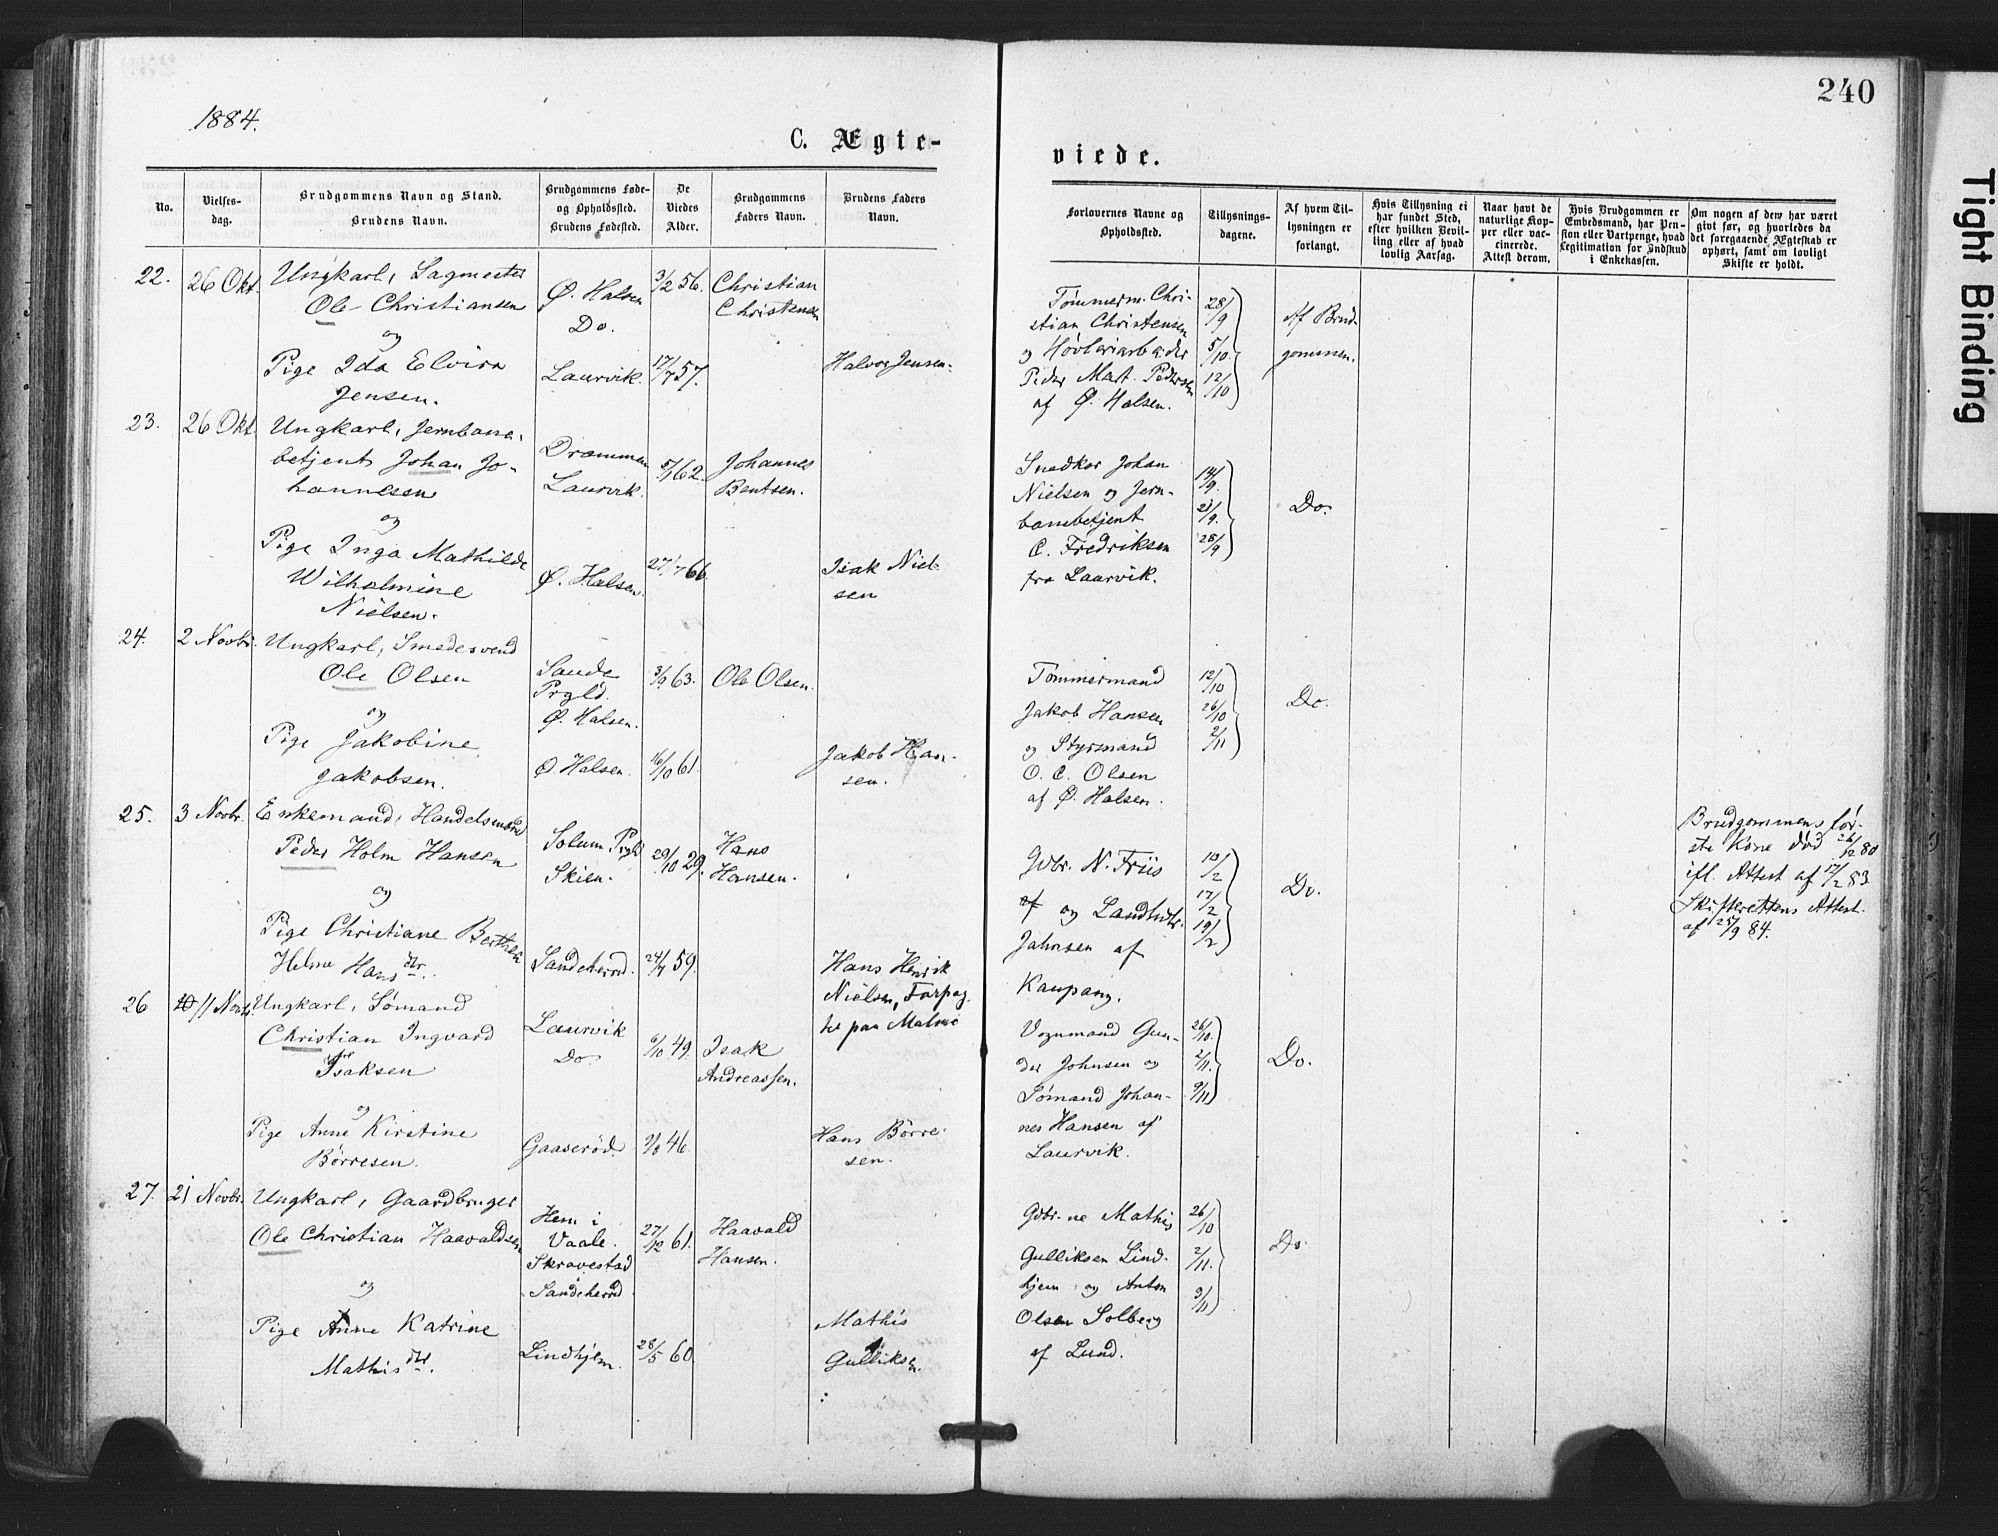 240
1884.
C. Ægte-
viede.
No.
Vielses-
dag.
Brudgommens Navn og Stand.
Brudens Navn.
Brudgommens Føde-
og Opholdssted.
Brudens Fødested.
De
Viedes
Alder.
Brudgommens
Faders Navn.
Brudens Faders
Navn.
Forlovernes Navne og
Opholdssted.
Tillysnings-
dagene.
Af hvem Til-
lysningen er
forlangt.
Hvis Tillysning ei
har fundet Sted,
efter hvilken Bevil-
ling eller af hvad
lovlig Aarsag.
Naar havt de
naturlige Kop-
per eller vac-
cinerede.
Attest derom.
Hvis Brudgommen er
Embedsmand, har Pen-
sion eller Vartpenge, hvad
Legitimation for Indskud
i Enkekassen.
Om nogen af dem har været
givt før, og hvorledes da
det foregaaende Ægteskab er
ophørt, samt om lovligt
Skifte er holdt.
22.
26 Okt.
Ungkarl, Sagmester
Ole Christiansen
og
Pige Ida Elvira
Jensen.
Ø. Halsen
Do.
Laurvik.
3/2 56.
17/7 57.
Christian
Christensen
Halvor Jensen.
Tømmerm. Chri-
stian Christensen
og Høvleriarbeider
Peder Mat. Pedersen
af Ø. Halsen.
28/9
5/10.
12/10
Af Brud-
gommen.
23.
26 Okt.
Ungkarl, Jernbane-
betjent Johan Jo-
hannesen
og
Pige Inga Mathilde
Wilhelmine
Nielsen.
Drammen
Laurvik.
Ø. Halsen.
62.
27/7 66.
Johannes
Bentsen.
Isak Niel-
sen
Snedker Johan
Nielsen og Jern-
banebetjent
C. Fredriksen
fra Laurvik.
14/9.
21/9.
28/9
Do.
24.
2 Novbr.
Ungkarl, Smedesvend
Ole Olsen
og
Pige Jakobine
Jakobsen.
Sande
Prgld.
Ø. Halsen.
Ø. Halsen.
3/9 63.
16/10 61.
Ole Olsen.
Jakob Han-
sen.
Tømmermand
Jakob Hansen
og Styrmand
O. C. Olsen
af Ø. Halsen.
12/10
26/10
2/11
Do.
25.
3 Novbr.
Enkemand, Handelsmand
Peder Holm Hansen
og
Pige Christiane Berthea
Helme Hansdtr.
Solum Prgld
Skien.
Sandeherred.
29/10 29.
59.
Hans
Hansen.
Hans Henrik
Nielsen, Forpag-
ter paa Malmø
Gdbr. N. Friis
af og Landhdlr.
Jahnsen af
Kaupang.
10/2
17/2
19/2
Do.
Brudgommens før-
ste Kone død 26/12 80
ifl. Attest af 17/2 83.
Skifterettens Attest
af 25/9 84.
26
11 Novbr.
Ungkarl, Sømand
Christian Ingvard
Isaksen
og
Pige Anne Kirstine
Børresen.
Laurvik
Do
Gaaserød.
6/10 49.
9/8 46
Isak
Andreassen.
Hans Børre-
sen.
Vognmand Gun-
der Johnsen og
Sømand Johan-
nes Hansen af
Laurvik.
26/10.
2/11.
9/11
Do.
27.
21 Novbr.
Ungkarl, Gaardbruger
Ole Christian Haavaldsen
og
Pige Anne Katrine
Mathisdtr.
Hem i
Vaale.
Skravestad
Sandeherred
Lindhjem.
27/12 61.
28/5 60.
Haavald
Hansen.
Mathis
Gulliksen.
Gdbr.ne Mathis
Gulliksen Lind-
hjem og Anton
Olsen Solberg
af Lund.
26/10
2/11.
9/11
Do.
Tight Binding